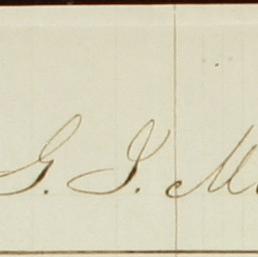 G. I. M